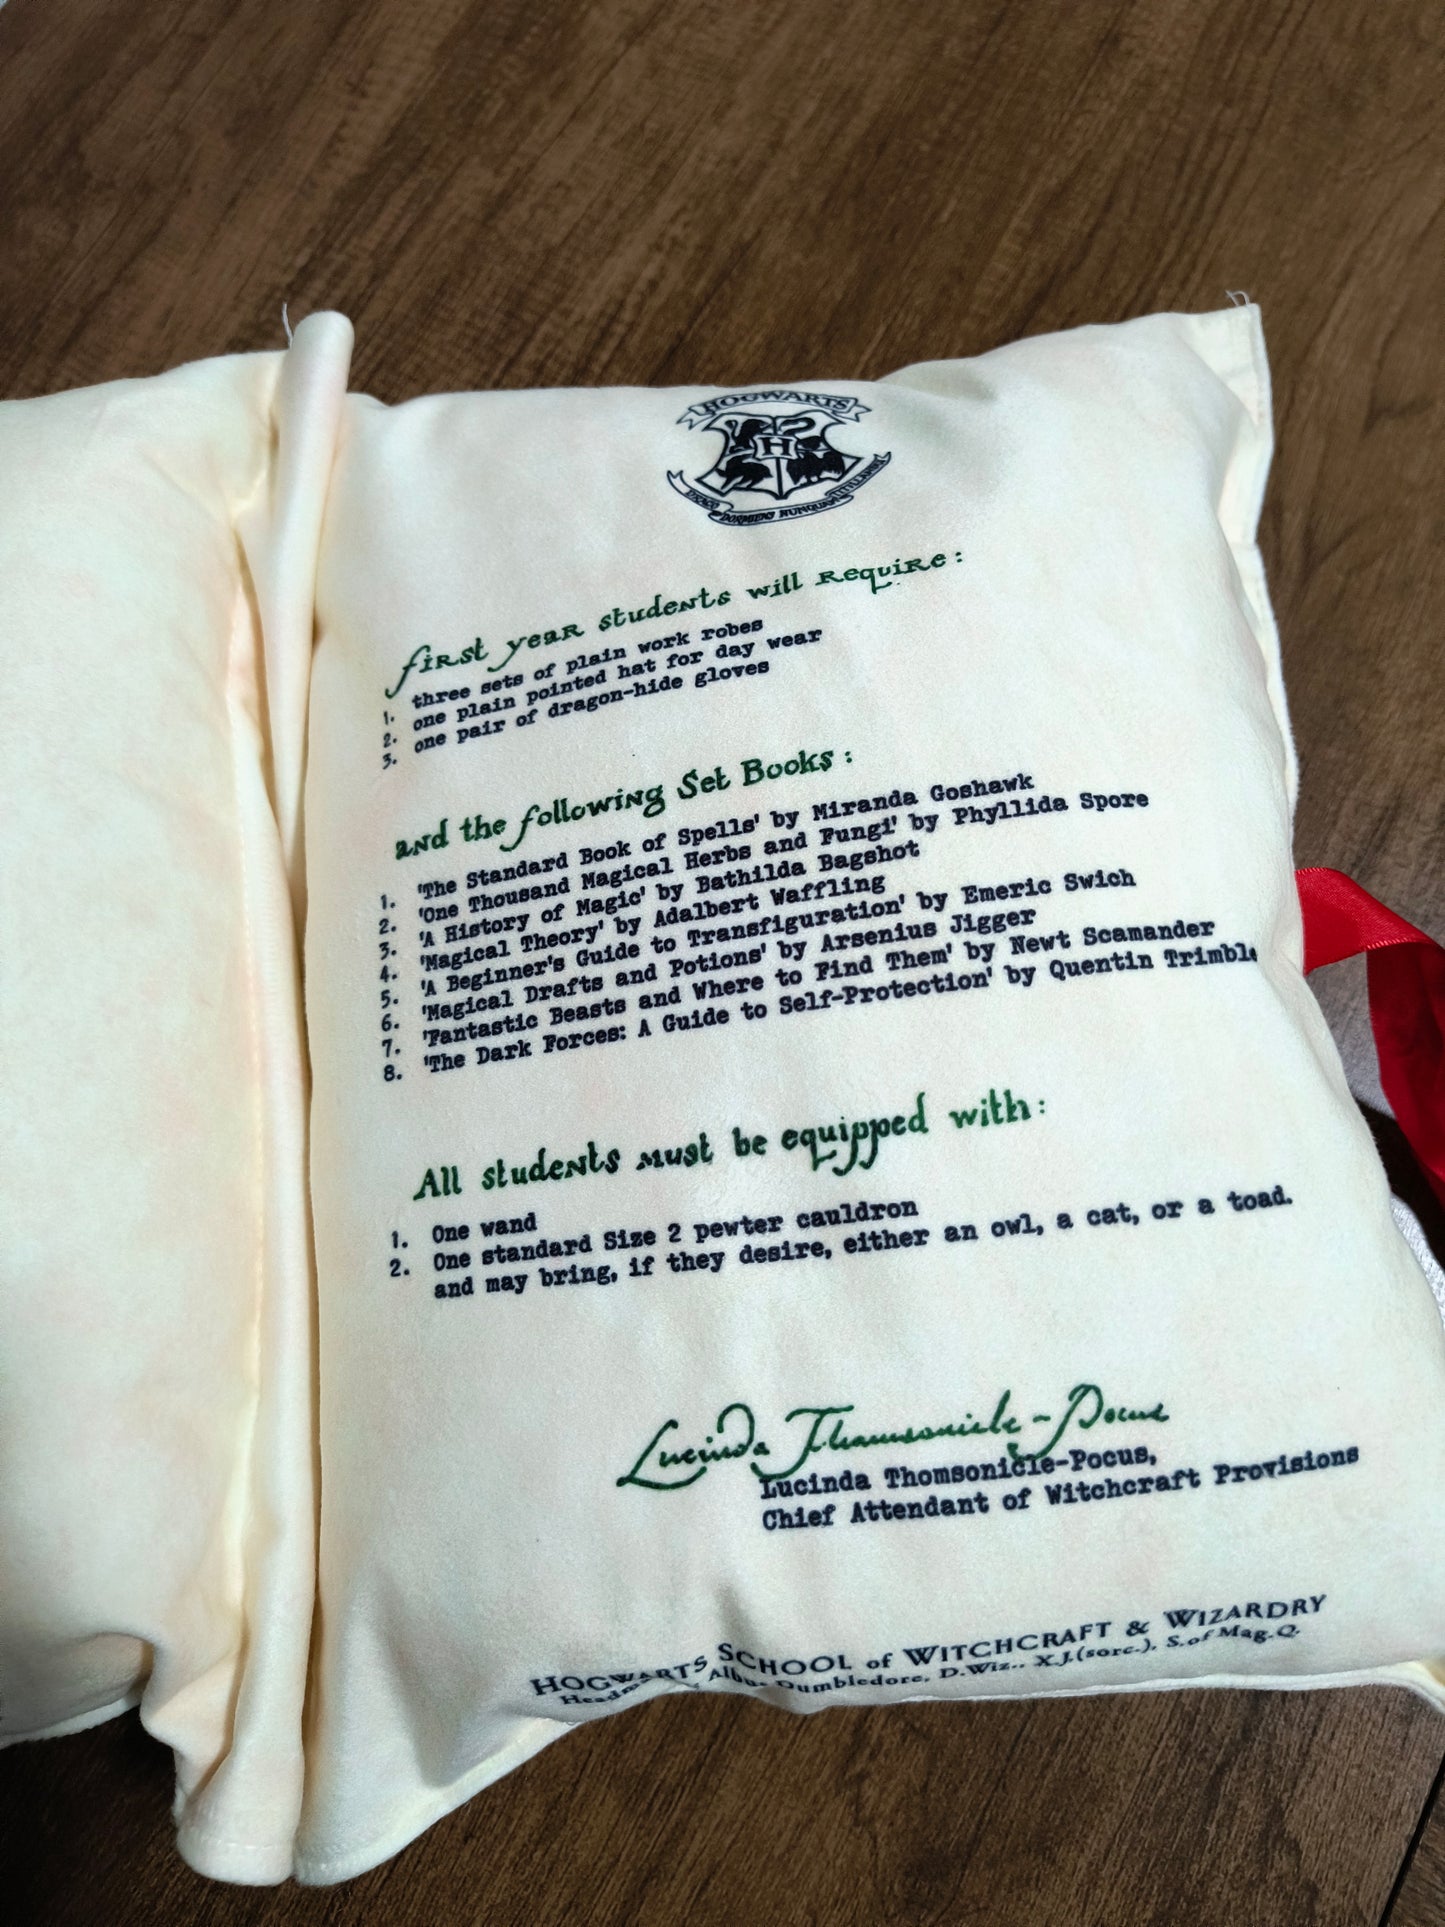 HOGWARTS
H
DRACO DORMIENS NUNQUAM TITILLANDUS
first year students will require:
1. three sets of plain work robes
2. one plain pointed hat for day wear
3. one pair of dragon-hide gloves
and the following Set Books:
1. 'The Standard Book of Spells' by Miranda Goshawk
2. 'One Thousand Magical Herbs and Fungi' by Phyllida Spore
3. 'A History of Magic' by Bathilda Bagshot
4. 'Magical Theory' by Adalbert Waffling
5. 'A Beginner's Guide to Transfiguration' by Emeric Swich
6. 'Magical Drafts and Potions' by Arsenius Jigger
7. 'Fantastic Beasts and Where to Find Them' by Newt Scamander
8. 'The Dark Forces: A Guide to Self-Protection' by Quentin Trimble
All students must be equipped with:
1. One wand
2. One standard Size 2 pewter cauldron
and may bring, if they desire, either an owl, a cat, or a toad.
Lucinda Thomsonicle-Pocus
Lucinda Thomsonicle-Pocus,
Chief Attendant of Witchcraft Provisions
HOGWARTS SCHOOL of WITCHCRAFT & WIZARDRY
Albus Dumbledore, D.Wiz., X.J.(sorc.), S.of Mag.Q.